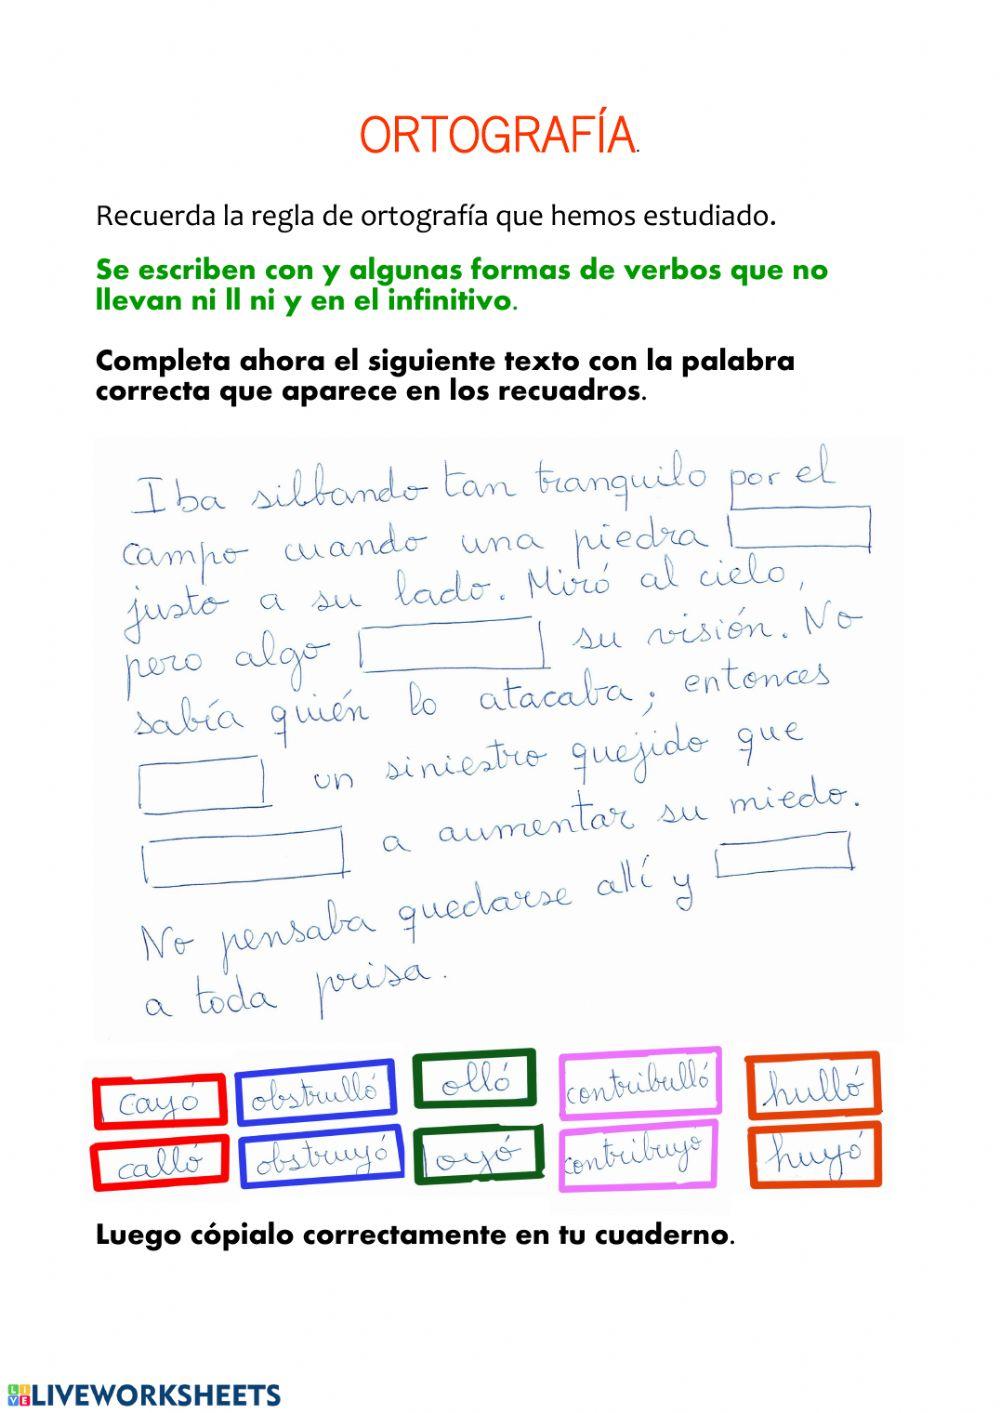 ORTOGRAFÍA.
Recuerda la regla de ortografía que hemos estudiado.
Se escriben con y algunas formas de verbos que no
llevan ni ll ni y en el infinitivo.
Completa ahora el siguiente texto con la palabra
correcta que aparece en los recuadros.
Iba silbando tan tranquilo por el
campo cuando una piedra
justo a su lado. Miró al cielo,
pero algo su visión. No
sabía quién lo atacaba; entonces
un siniestro quejido que
a aumentar su miedo.
No pensaba quedarse allí y
a toda prisa.
cayó obstrulló olló contribulló hulló
calló obstruyó oyó contribuyó huyó
Luego cópialo correctamente en tu cuaderno.
LIVE LIVEWORKSHEETS